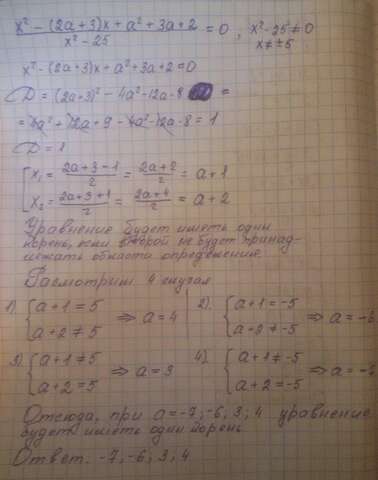 x² - (2a+3)x + a² + 3a + 2 / x² - 25 = 0 , x² - 25 ≠ 0
x ≠ ±5
x² - (2a+3)x + a² + 3a + 2 = 0
D = (2a+3)² - 4a² - 12a - 8 =
= 4a² + 12a + 9 - 4a² - 12a - 8 = 1
D = 1
[ x₁ = 2a+3-1 / 2 = 2a+2 / 2 = a+1
x₂ = 2a+3+1 / 2 = 2a+4 / 2 = a+2
Уравнение будет иметь один
корень, если второй не будет принад-
лежать области определение.
Расмотрим 4 случая
1) { a+1 = 5
a+2 ≠ 5 ⇒ a = 4
2). { a+1 = -5
a+2 ≠ -5 ⇒ a = -6
3) { a+1 ≠ 5
a+2 = 5 ⇒ a = 3
4). { a+1 ≠ -5
a+2 = -5 ⇒ a = -7
Отсюда, при a = -7, -6, 3, 4 уравнение
будет иметь один корень
Ответ. -7, -6, 3, 4